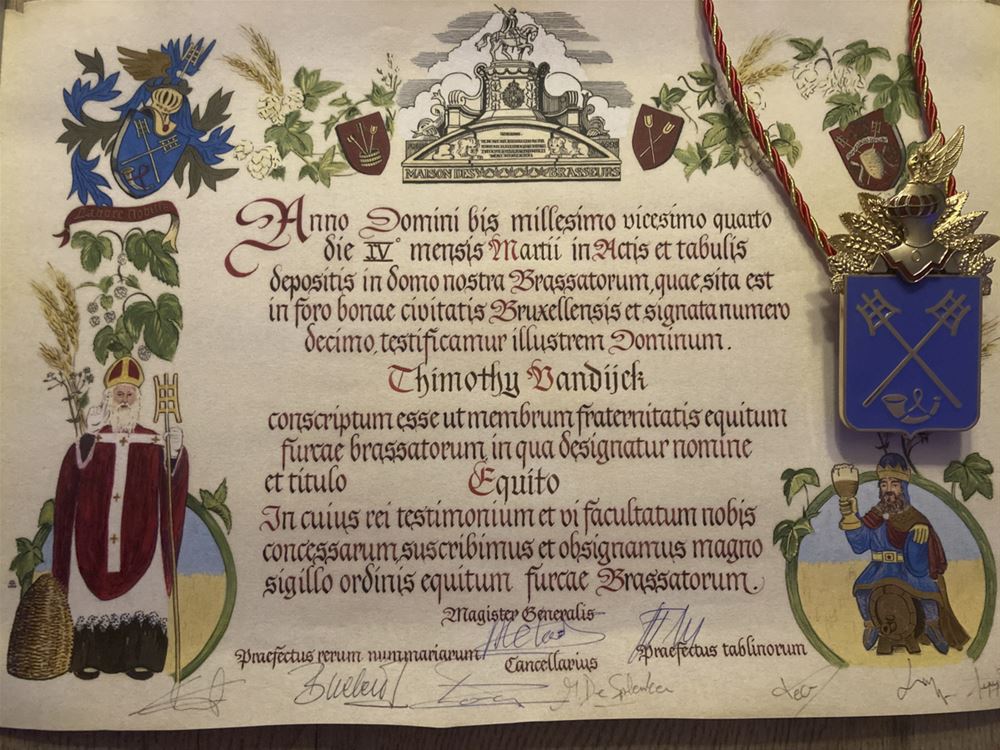 MAISON DES BRASSEURS
Anno Domini bis millesimo vicesimo quarto
die IV° mensis Martii in Actis et tabulis
depositis in domo nostra Brassatorum, quae sita est
in foro bonae civitatis Bruxellensis et signata numero
decimo, testificamur illustrem Dominum.
Thimothy Vandijck
conscriptum esse ut membrum fraternitatis equitum
furcae brassatorum, in qua designatur nomine
et titulo Equito
In cuius rei testimonium et vi facultatum nobis
concessarum, suscribimus et obsignamus magno
sigillo ordinis equitum furcae Brassatorum.
Magister Generalis
Praefectus rerum nummariarum Cancellarius Praefectus tablinorum